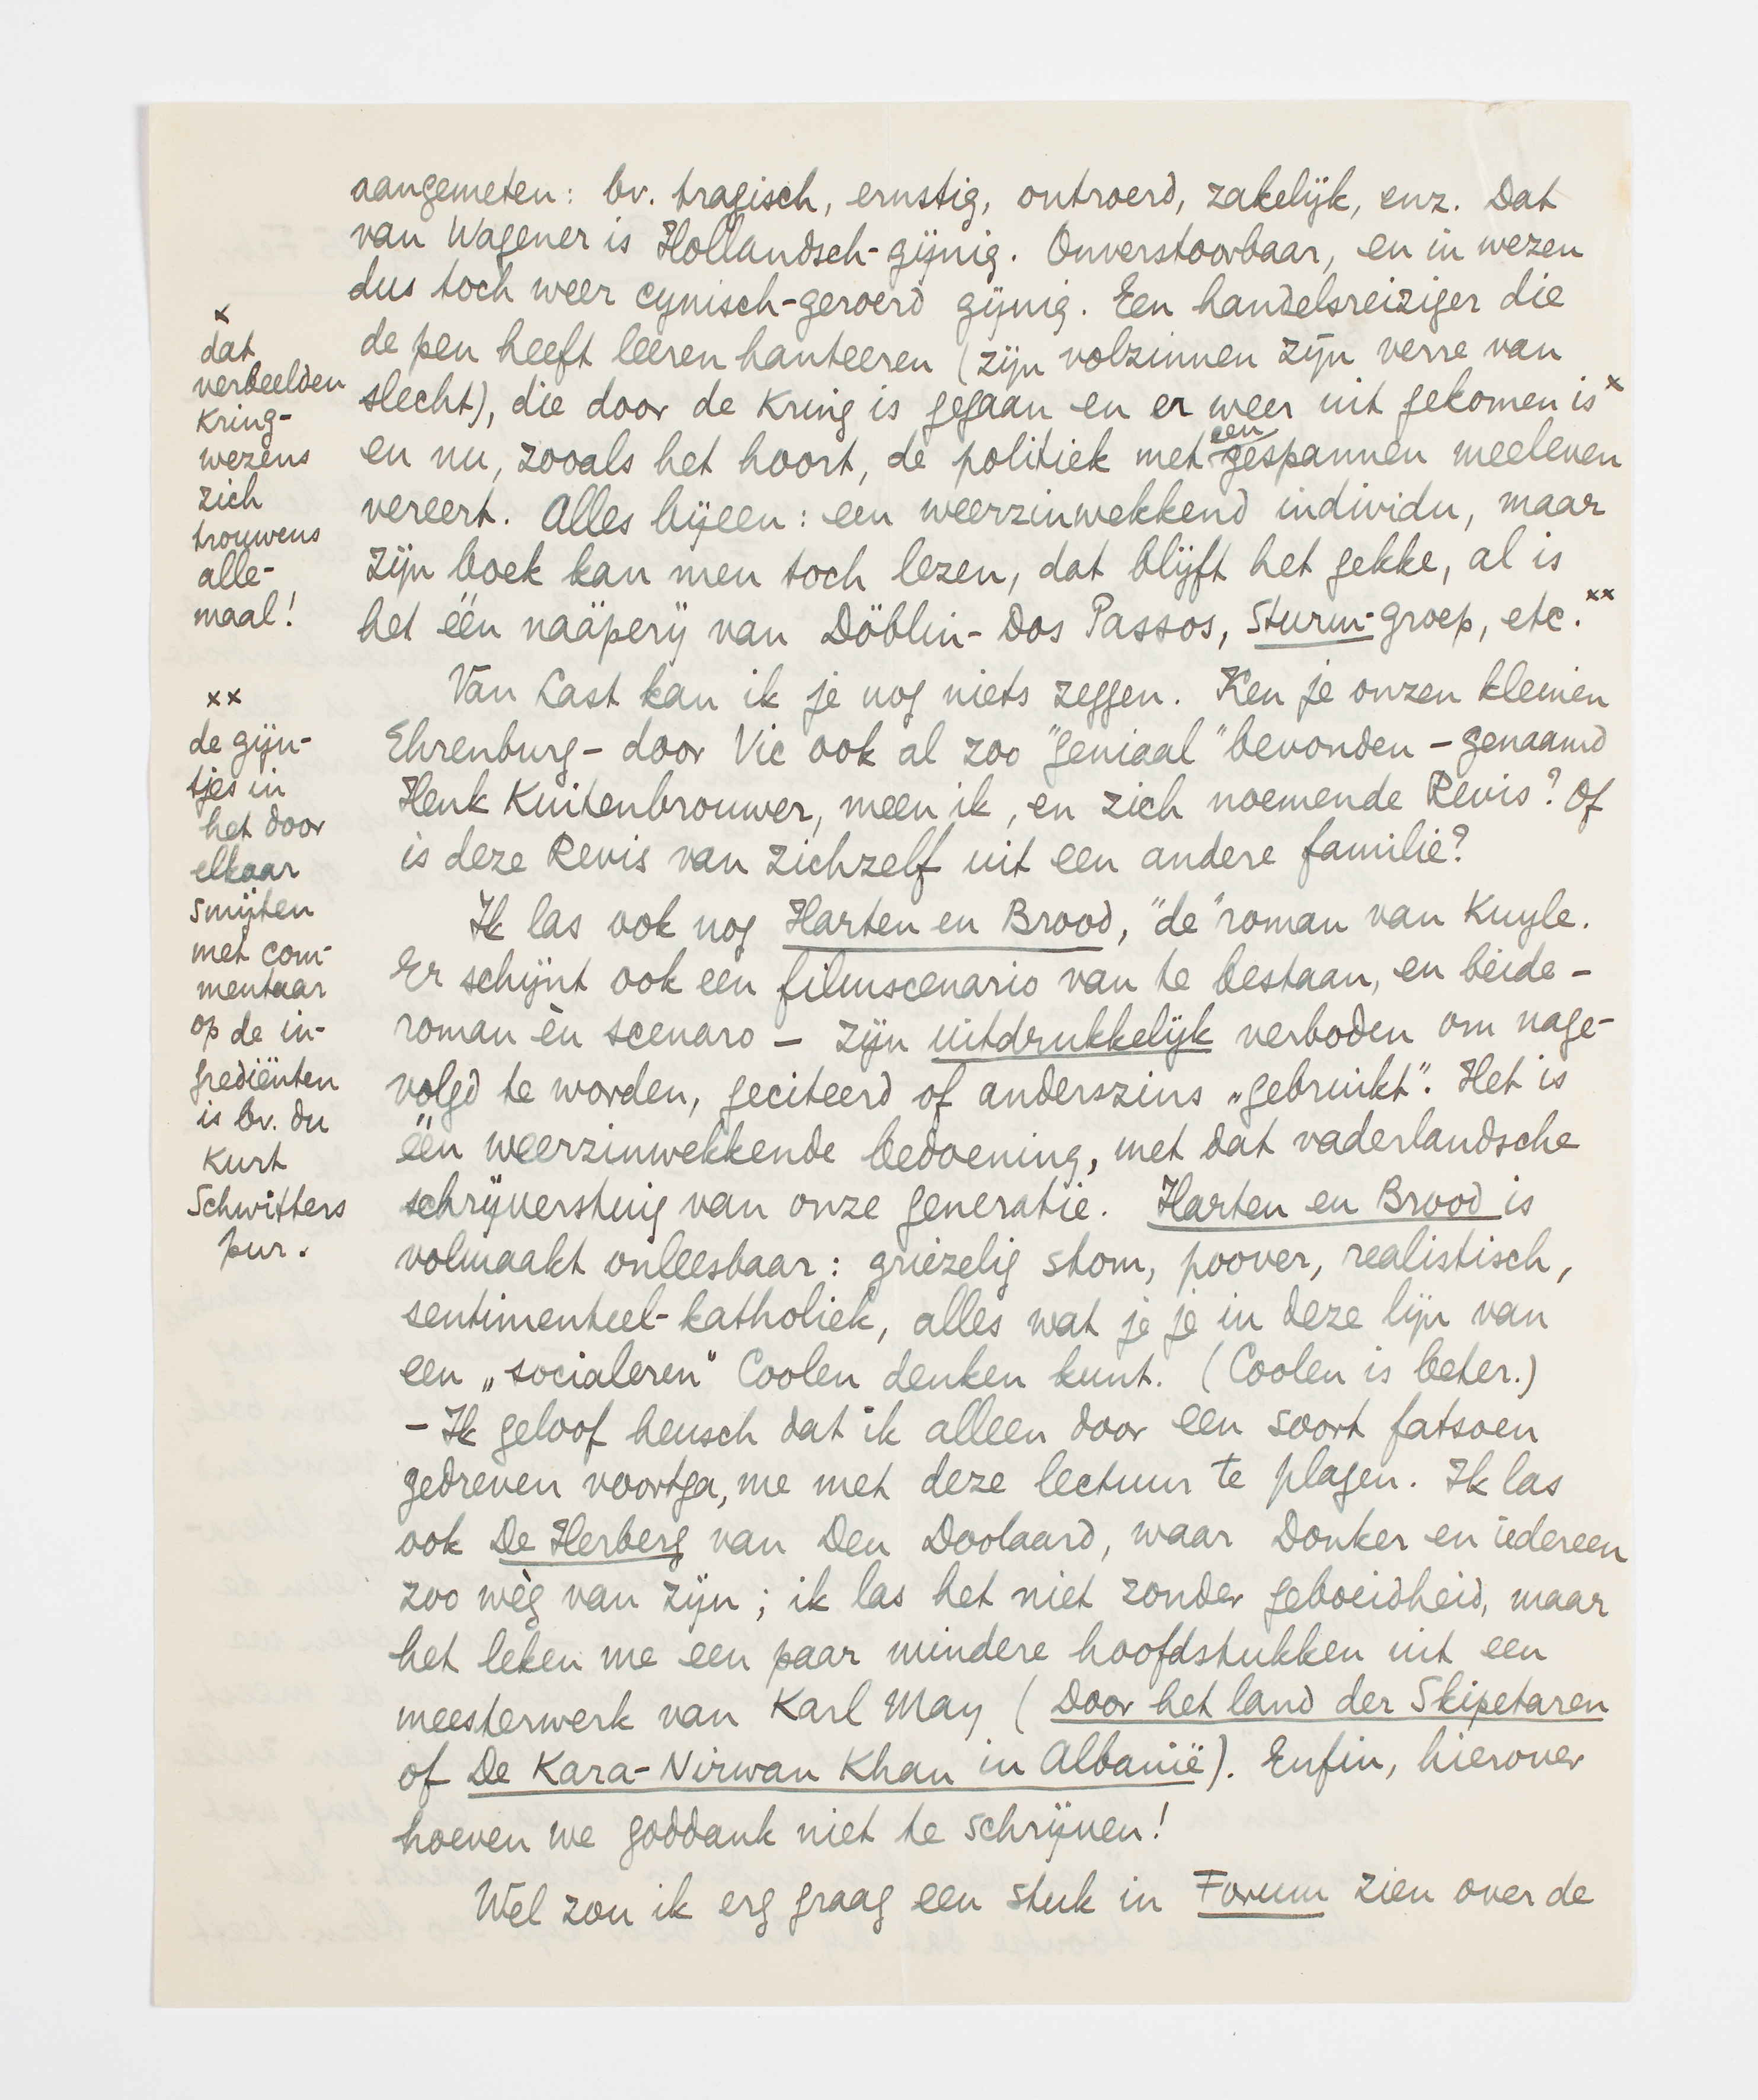 aangemeten: bv. tragisch, ernstig, ontroerd, zakelijk, enz. Dat
van Wagener is Hollandsch-gijnig. Onverstoorbaar, en in wezen
dus toch weer cynisch-geroerd gijnig. Een handelsreiziger die
de pen heeft leeren hanteeren (zijn volzinnen zijn verre van
slecht), die door de Kring is gegaan en er weer uit gekomen is x
en nu, zooals het hoort, de politiek met een gespannen meeleven
vereert. Alles bijeen: een weerzinwekkend individu, maar
zijn boek kan men toch lezen, dat blijft het gekke, al is
het één naäperij van Döblin-Dos Passos, Sturm-groep, etc. xx
x
dat
verbeelden
Kring-
wezens
zich
trouwens
alle-
maal!
Van Last kan ik je nog niets zeggen. Ken je onzen kleinen
Ehrenburg - door Vic ook al zoo "geniaal" bevonden - genaamd
Henk Kuitenbrouwer, meen ik, en zich noemende Revis? Of
is deze Revis van zichzelf uit een andere familie?
Ik las ook nog Harten en Brood, "de" roman van Kuyle.
Er schijnt ook een filmscenario van te bestaan, en beide -
roman èn scenaro - zijn uitdrukkelijk verboden om nage-
volgd te worden, geciteerd of anderszins „gebruikt". Het is
één weerzinwekkende bedoening, met dat vaderlandsche
schrijverstuig van onze generatie. Harten en Brood is
volmaakt onleesbaar: griezelig stom, poover, realistisch,
sentimenteel-katholiek, alles wat je je in deze lijn van
een „socialeren" Coolen denken kunt. (Coolen is beter.)
xx
de gijn-
tjes in
het door
elkaar
smijten
met com-
mentaar
op de in-
grediënten
is bv. du
Kurt
Schwitters
pur.
- Ik geloof heusch dat ik alleen door een soort fatsoen
gedreven voortga, me met deze lectuur te plagen. Ik las
ook De Herberg van Den Doolaard, waar Donker en iedereen
zoo wèg van zijn; ik las het niet zonder geboeidheid, maar
het leken me een paar mindere hoofdstukken uit een
meesterwerk van Karl May (Door het land der Skipetaren
of De Kara-Nirwan Khan in Albanië). Enfin, hierover
hoeven we goddank niet te schrijven!
Wel zou ik erg graag een stuk in Forum zien over de